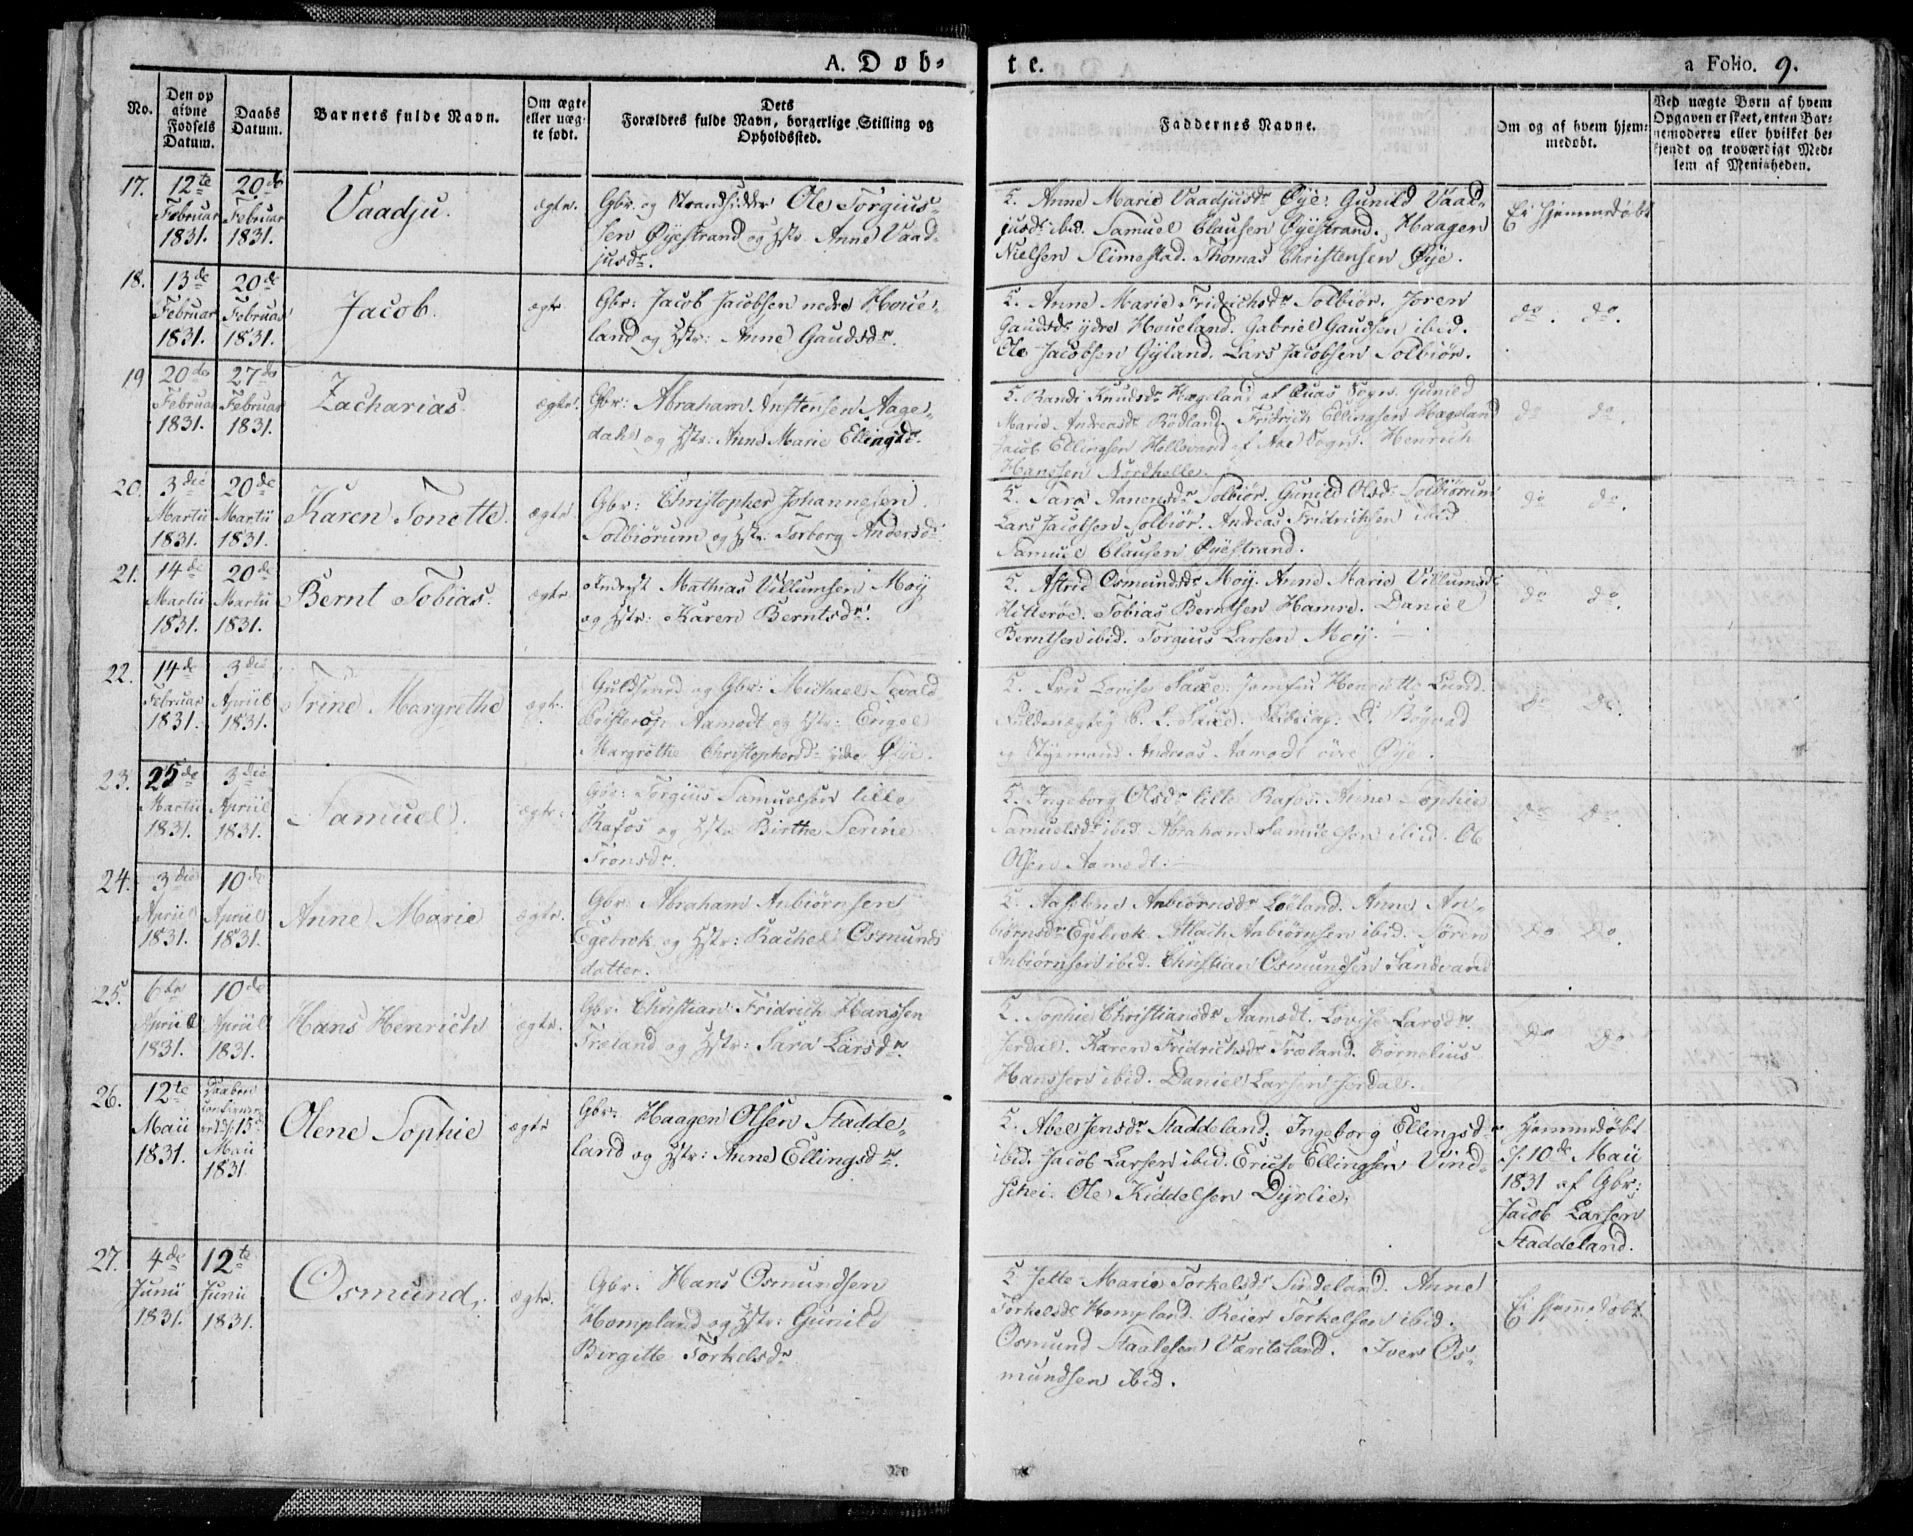 A. Døb-
te.
a Folio. 9.
No.
Den op
givne
Fødsels
Datum.
Daabs
Datum.
Barnets fulde Navn.
Om ægte
eller uæg-
te født.
Dets
Forældres fulde Navn, borgerlige Stilling og
Opholdssted.
Faddernes Navne.
Om og af hvem hjem-
medøbt.
Ved uægte Børn af hvem
Opgaven er skeet, enten Bar-
nemoderen eller hvilket be-
kjendt og troværdigt Med-
lem af Menigheden.
17.
12te
Februar
1831.
20de
Februar
1831.
Vaadju.
ægte.
Gbr. og Strandsidder Ole Torgius-
sen Øyestrand og Hstr. Anne Vaad-
jusdr.
F. Anne Marie Vaadjusdr Øye. Gunild Vaad-
jusdr ibid. Samuel Clausen Øyestrand. Haagen
Nielsen Slimestad. Thomas Christensen Øye.
Ei Hjemmedøbt
18.
13de
Februar
1831.
20de
Februar
1831.
Jacob.
ægte
Gbr: Jacob Jacobsen nedre Houe-
land og Hstr: Anne Gaudsdr.
F. Anne Marie Fridrichsdr Solbiør. Joren
Gaudsdr ydre Houeland. Gabriel Gaudsen ibid.
Ole Jacobsen Gyland. Lars Jacobsen Solbiør.
do. do.
19
20de
Februar
1831.
27de
Februar
1831.
Zacharias.
ægte.
Gbr: Abraham Anstensen Aage-
dahl og Hstr: Anne Marie Ellingsdr.
F. Randi Knudsdr Hægeland af Quas Sogn. Gunild
Marie Andreasdr Rødland. Fridrich Ellingsen Hageland
Jacob Ellingsen Hellevand af Aae Sogn. Henrich
Hanssen Nordhelle.
do do.
20.
3die
Martii
1831.
20de
Martii
1831.
Karen Tonette.
ægte
Gbr: Christopher Johannesen
Solbiørum og Hstr: Torborg Andersdr
F. Sara Aanensdr Solbiør. Gunild Olsdr Solbiørum
Lars Jacobsen Solbiør. Andreas Fridrichsen ibid
Samuel Clausen Øyestrand.
do do.
21.
14de
Martii
1831.
20de
Martii
1831.
Bernt Tobias.
ægte
Mathias Villumsen Moy
og Hstr: Karen Berntsdr.
F. Astrid Osmundsdr Moy. Anne Marie Villumsdr
Hitterøe. Tobias Berntsen Hamre. Daniel
Berntsen ibid. Torgius Larsen Moy.
do do.
22.
14de
Februar
1831.
3die
Apriil
1831.
Trine Margrethe
ægte.
Guldsmed og Gbr: Michael Sevald
Aamodt og Hstr: Engel
Margrethe Christophersdr ydre Øye.
F. Fru Lovise Faxe. Jomfru Henriette Lund.
Fuldmægtig P. L. Faxe. Skibscap: Bøgvad
og Styrmand Andreas Aamodt øvre Øye.
Do Do.
23.
25de
Martii
1831.
3die
Apriil
1831.
Samuel.
ægte.
Gbr: Torgius Samuelsen lille
Rafos og Hstr Birthe Serine
Tronsdr.
F. Ingeborg Olsdr lille Rafos. Anne Sophie
Samuelsdr ibid. Abraham Samuelsen ibid. Ole
Olsen Aamodt.
Do Do.
24.
3die
Apriil
1831.
10de
Apriil
1831.
Anne Marie
ægte.
Gbr: Abraham Anbiørnsen
Egebrok og Hstr: Rachel Osmunds
datter.
F. Aaselene Anbiørnsdr Løland. Anne An-
biørnsdr Egebrok. Anbiørnsen ibid. Søren
Anbiørnsen ibid. Christian Osmundsen Sandvand
Do Do.
25.
6te
Apriil
1831.
10de
Apriil
1831.
Hans Henrich
ægte.
Gbr: Christian Fridrich Hanssen
Træland og Hstr: Sara Larsdr.
F. Sophie Christiansdr Aamodt. Lovise Larsdr.
Jerdal. Karen Fridrichsdr Træland. Cornelius
Hanssen ibid. Daniel Larsen Jerdal.
Do Do
26.
12te
Maii
1831.
Daaben
confirmer
15
Maii
1831
Olene Sophie
ægte
Gbr: Haagen Olsen Stadde-
land og Hstr: Anne Ellingsdr.
F. Abel Jensdr Staddeland. Ingeborg Ellingsdr
ibid. Jacob Larsen ibid. Erich Ellingsen Vind-
schei. Ole Kiddelsen Dyrlie.
Hjemmedøbt
d. 10de Maii
1831 af Gbr:
Jacob Larsen
Staddeland.
27.
4de
Junii
1831.
12te
Junii
1831.
Osmund.
ægte.
Gbr: Hans Osmundsen
Hompland og Hstr: Gunild
Birgitte Torkelsdr
F. Jette Marie Torkelsdr Sindeland. Anne
Torkelsdr Hompland. Reier Torkelsen ibid.
Osmund Staalesen Væritsland. Iver Os-
mundsen ibid.
Ei Hjemmedøbt